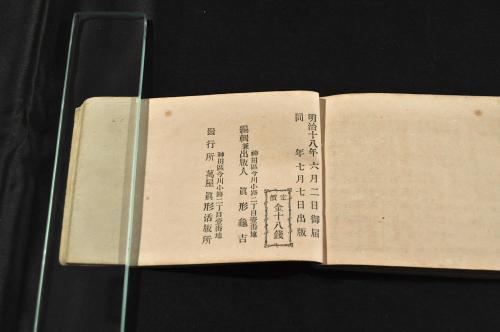 明治十八年六月二日御届
同年七月七日出版
定價
金十八錢
神田區今川小路二丁目壹番地
編輯兼出版人 眞形龜吉
神田區今川小路二丁目壹番地
發行所 萬屋眞形活版所